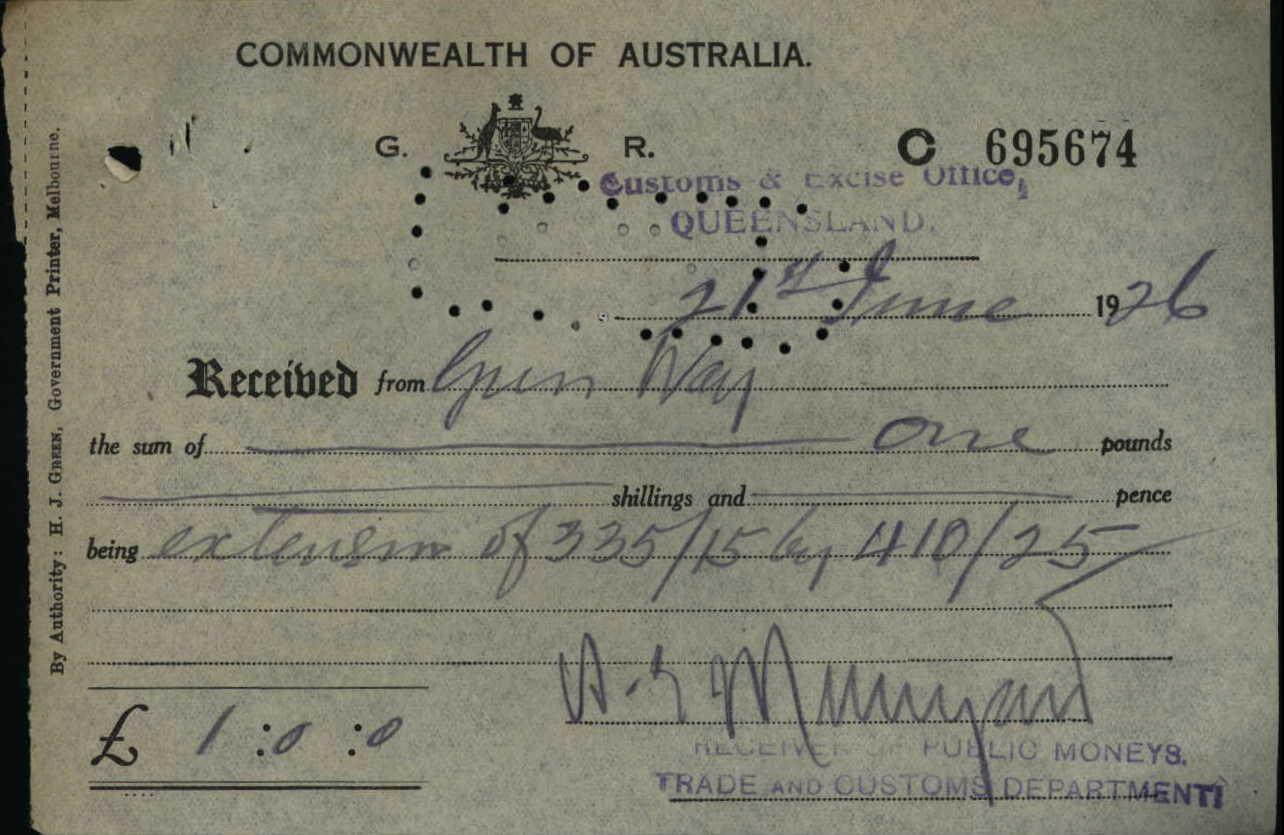 COMMONWEALTH OF AUSTRALIA.
G. R. C 695674
Customs & Excise Office,
QUEENSLAND.
21st June 1926
Received from Way
the sum of One pounds
shillings and pence
being extension of 335/15 by 410/25
£ 1 : 0 : 0
RECEIVER OF PUBLIC MONEYS.
TRADE AND CUSTOMS DEPARTMENT
By Authority: H. J. GREEN, Government Printer, Melbourne.